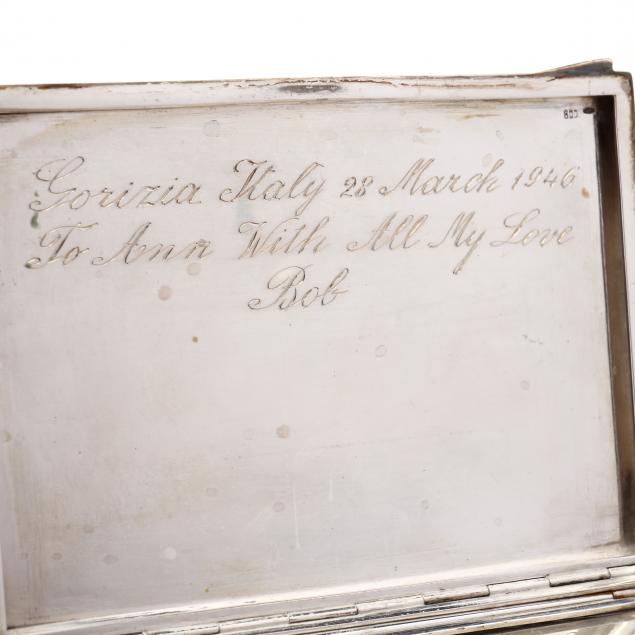 800
Gorizia Italy 28 March 1946
To Ann With All My Love
Bob